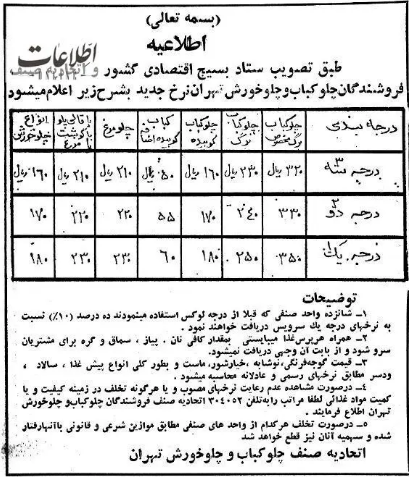 (بسمه تعالی)
اطلاعیه
اطلاعات
طبق تصویب ستاد بسیج اقتصادی کشور و اتحادیه صنف
فروشندگان چلوکباب و چلوخورش تهران نرخ جدید بشرح زیر اعلام میشود
درجه بندی چلوکباب برگ مخصوص چلوکباب برگ چلوکباب کوبیده کباب کوبیده اضافه چلومرغ باقالی پلو با گوشت یا مرغ انواع چلوخورش
درجه ۳ سه ۳۲۰ ریال ۲۳۰ ریال ۱۶۰ ریال ۵۰ ریال ۲۱۰ ریال ۲۱۰ ریال ۱۶۰ ریال
درجه ۲ دو ۳۳۰ ۲۴۰ ۱۷۰ ۵۵ ۲۲۰ ۲۲۰ ۱۷۰
درجه یک ۱ ۳۵۰ ۲۵۰ ۱۸۰ ۶۰ ۲۳۰ ۲۳۰ ۱۸۰
توضیحات
۱ـ شانزده واحد صنفی که قبلا از درجه لوکس استفاده مینمودند ده درصد (۱۰٪) نسبت
به نرخهای درجه یک سرویس دریافت خواهند نمود .
۲ـ همراه هرپرس غذا میبایستی بمقدار کافی نان . پیاز ، سماق و گره برای مشتریان
سرو شود و از بابت آن وجهی دریافت نمیشود.
۳ـ قیمت گوجه فرنگی، نوشابه ، خیارشور، ماست و بطور کلی انواع پیش غذا ، سالاد ،
ودسر مطابق نرخهای رسمی و عادلانه محاسبه میشود.
۴ـ درصورت مشاهده عدم رعایت نرخهای مصوب و یا هرگونه تخلف در زمینه کیفیت و یا
کمیت مواد غذائی لطفا مراتب را به تلفن ۳۰۴۰۵۲ اتحادیه صنف فروشندگان چلوکباب و چلوخورش
تهران اطلاع فرمایند .
۵ـ درصورت تخلف هرکدام از واحد های صنفی مطابق موازین شرعی و قانونی با آنها رفتار
شده و سهمیه آنان نیز قطع خواهد شد
اتحادیه صنف چلوکباب و چلوخورش تهران